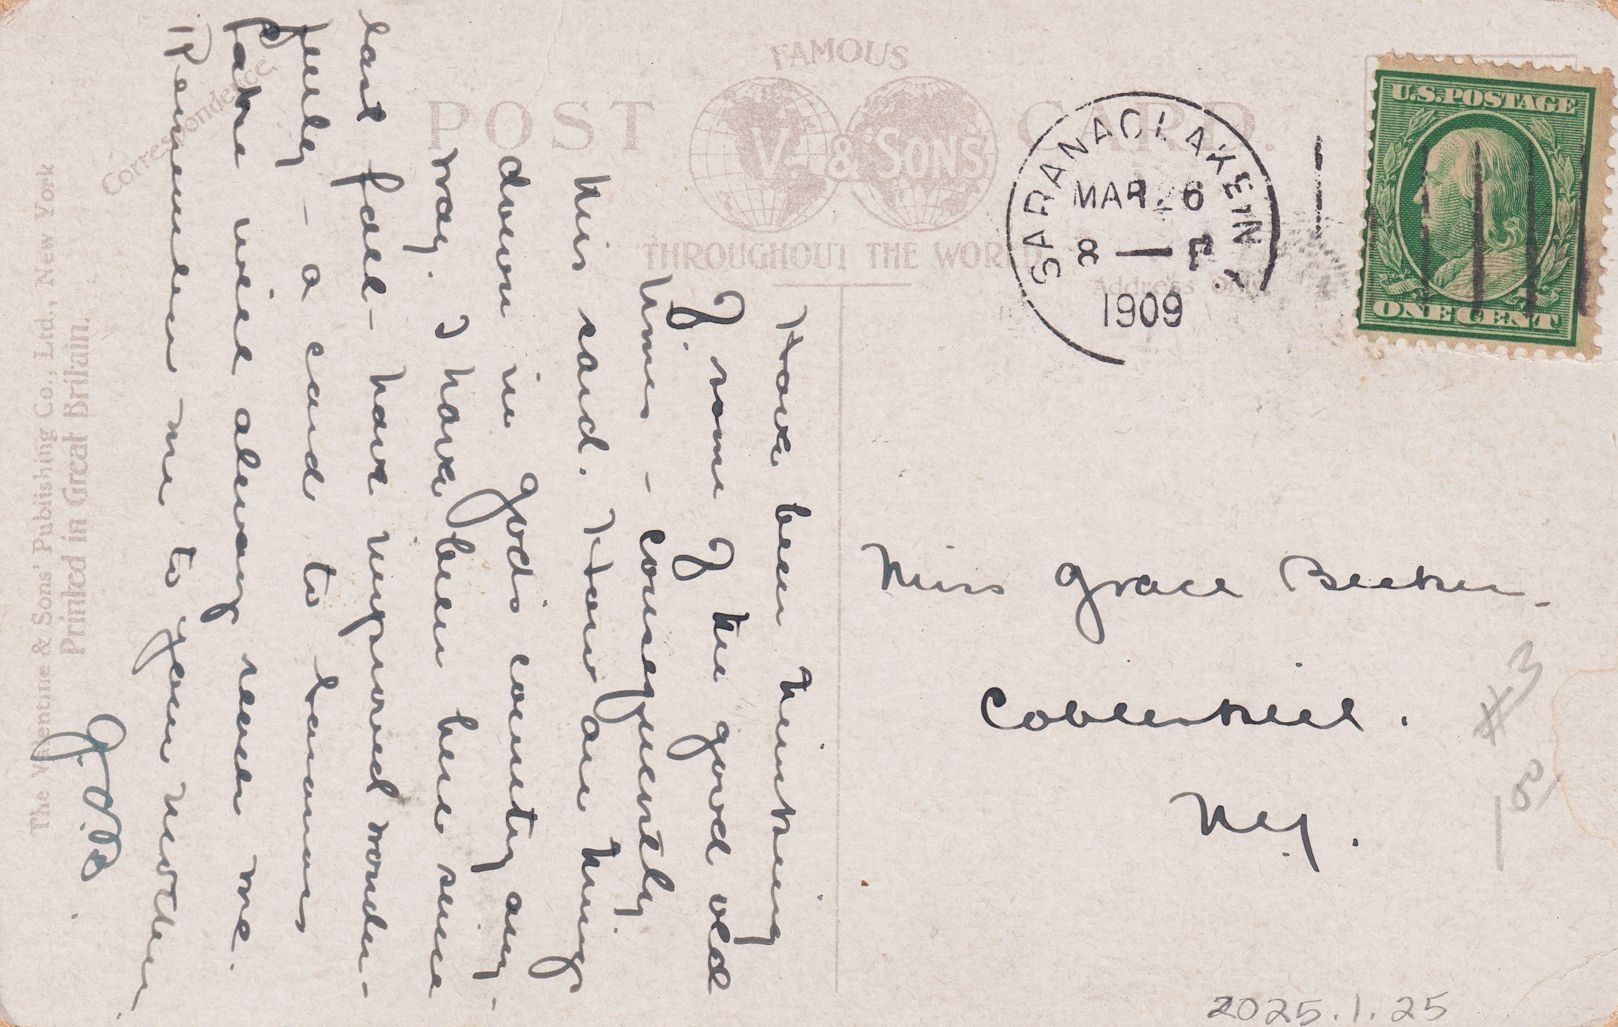 FAMOUS
POST CARD.
V. & SONS
THROUGHOUT THE WORLD
Correspondence.
Address Only
The Valentine & Sons' Publishing Co., Ltd., New York
Printed in Great Britain.
SARANAC LAKE, N.Y.
MAR 26
8 — P
1909
U.S. POSTAGE
ONE CENT
Have been thinking
of some of the good old
times – consequently.
this card. How are things
down in God's country any-
way. I have been here since
last fall – have improved wonder-
fully – a card to Saranac
Lake will always reach me.
Remember me to your mother.
Miss Grace Becker.
Cobleskill.
N.Y.
#3
18/
2025.1.25